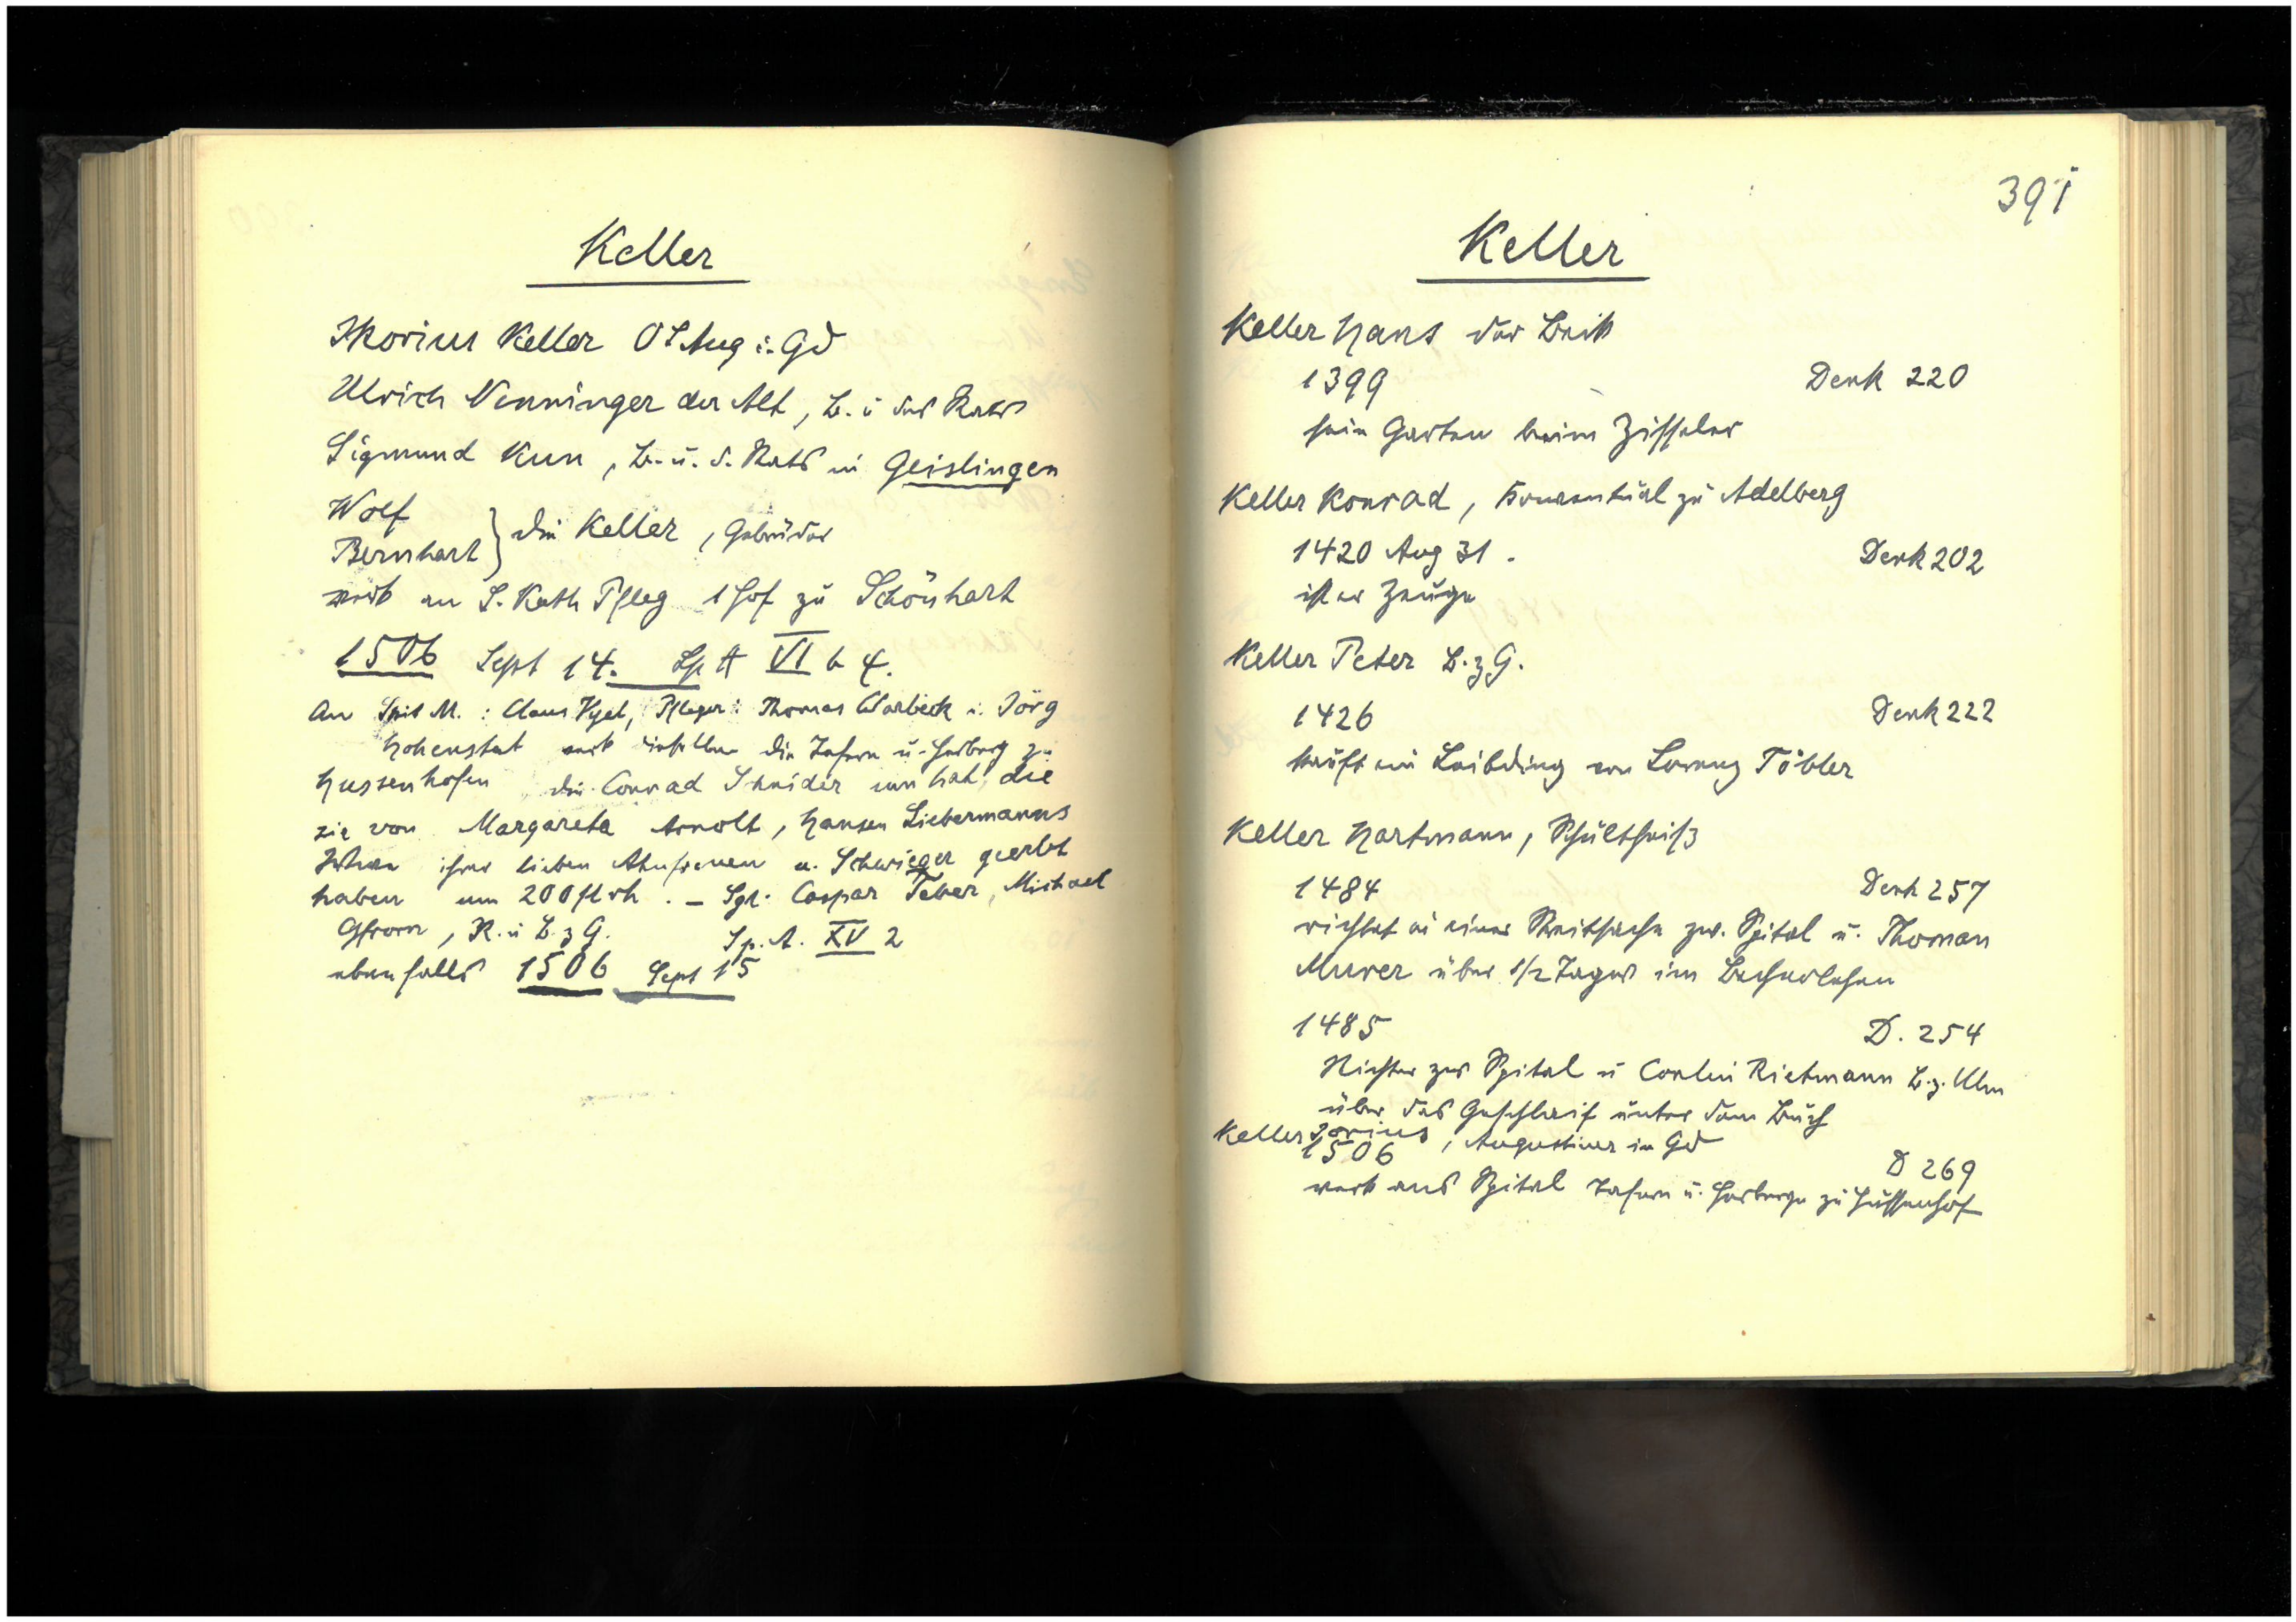 Keller
Ikorius Keller OSAug i. Gd
Ulrich Nenninger der Alt, B. u. des Rats
Sigmund Kun, B. u. d. Rats in Geislingen
Wolf
Bernhart } die Keller, Gebrüder
verk an S. Kath Pfleg 1 Hof zu Schönhart
1506 Sept 14. Sp A VI b 4.
An Spit M.: Claus Vgel, Pfleger: Thomas Warbeck u. Jörg
Hohenstat verk dieselben die Tafern u. Herberg zu
Hussenhofen, die Conrad Schnider inn hat, die
sie von Margareta Arnolt, Hansen Liebermanns
Witwe ihrer lieben Ahnfrauen u. Schwieger geerbt
haben um 200 fl rh. – Sgl: Caspar Teber, Michael
Gfrorn, R. u B. z G. Sp. A. XV 2
ebenfalls 1506 Sept 15
391
Keller
Keller Hans der Beck
1399 Denk 220
sein Garten beim Zisseler
Keller Konrad, Konventual zu Adelberg
1420 Aug 31. Denk 202
ist er Zeuge
Keller Peter B. z G.
1426 Denk 222
kauft ein Leibding von Lorenz Töbler
Keller Hartmann, Schultheiß
1484 Denk 257
richtet in einer Streitsache zw. Spital u. Thoman
Murer über 1/2 Tagw im Becherlehen
1485 D. 254
Richter zw Spital u Conlin Rietmann B. z. Ulm
über das Geschleif unter dem Buch
Keller Jorius, Augustiner in Gd
1506 D 269
verk ans Spital Tafern u. Herberge zu Hussenhof